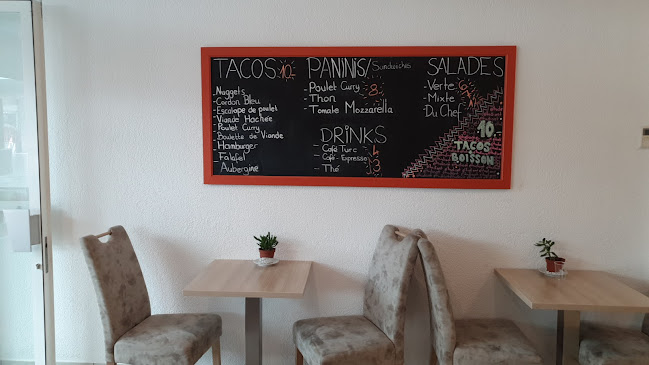 TACOS 10.-
Naggets
-Cordon Bleu
-Escalope de poulet
Viande Hachée
Poulet Curry
Boulette de Viande
-Hamburger
-Falafel
-Aubergine
PANINIS/Sandwiches
-Poulet Curry 8.-
-Thon
-Tomate Mozzarella
DRINKS
-Café Turc 4
-Café-Expresse 3
-Thé 3
SALADES
-Verte
-Mixte
-Du Chef
10.-
TACOS
BOISSON